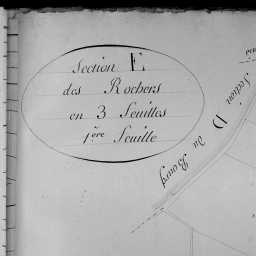 Section E
des Rochers
en 3 Feuilles
1ère Feuille
Section D
du Bourg